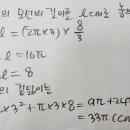 의 모선의 길이를 l cm로 놓
l = (2π×3) × 8/3
l = 16π
l = 8
의 겉넓이는
×3²+π×3×8 = 9π+24π
= 33π (cm